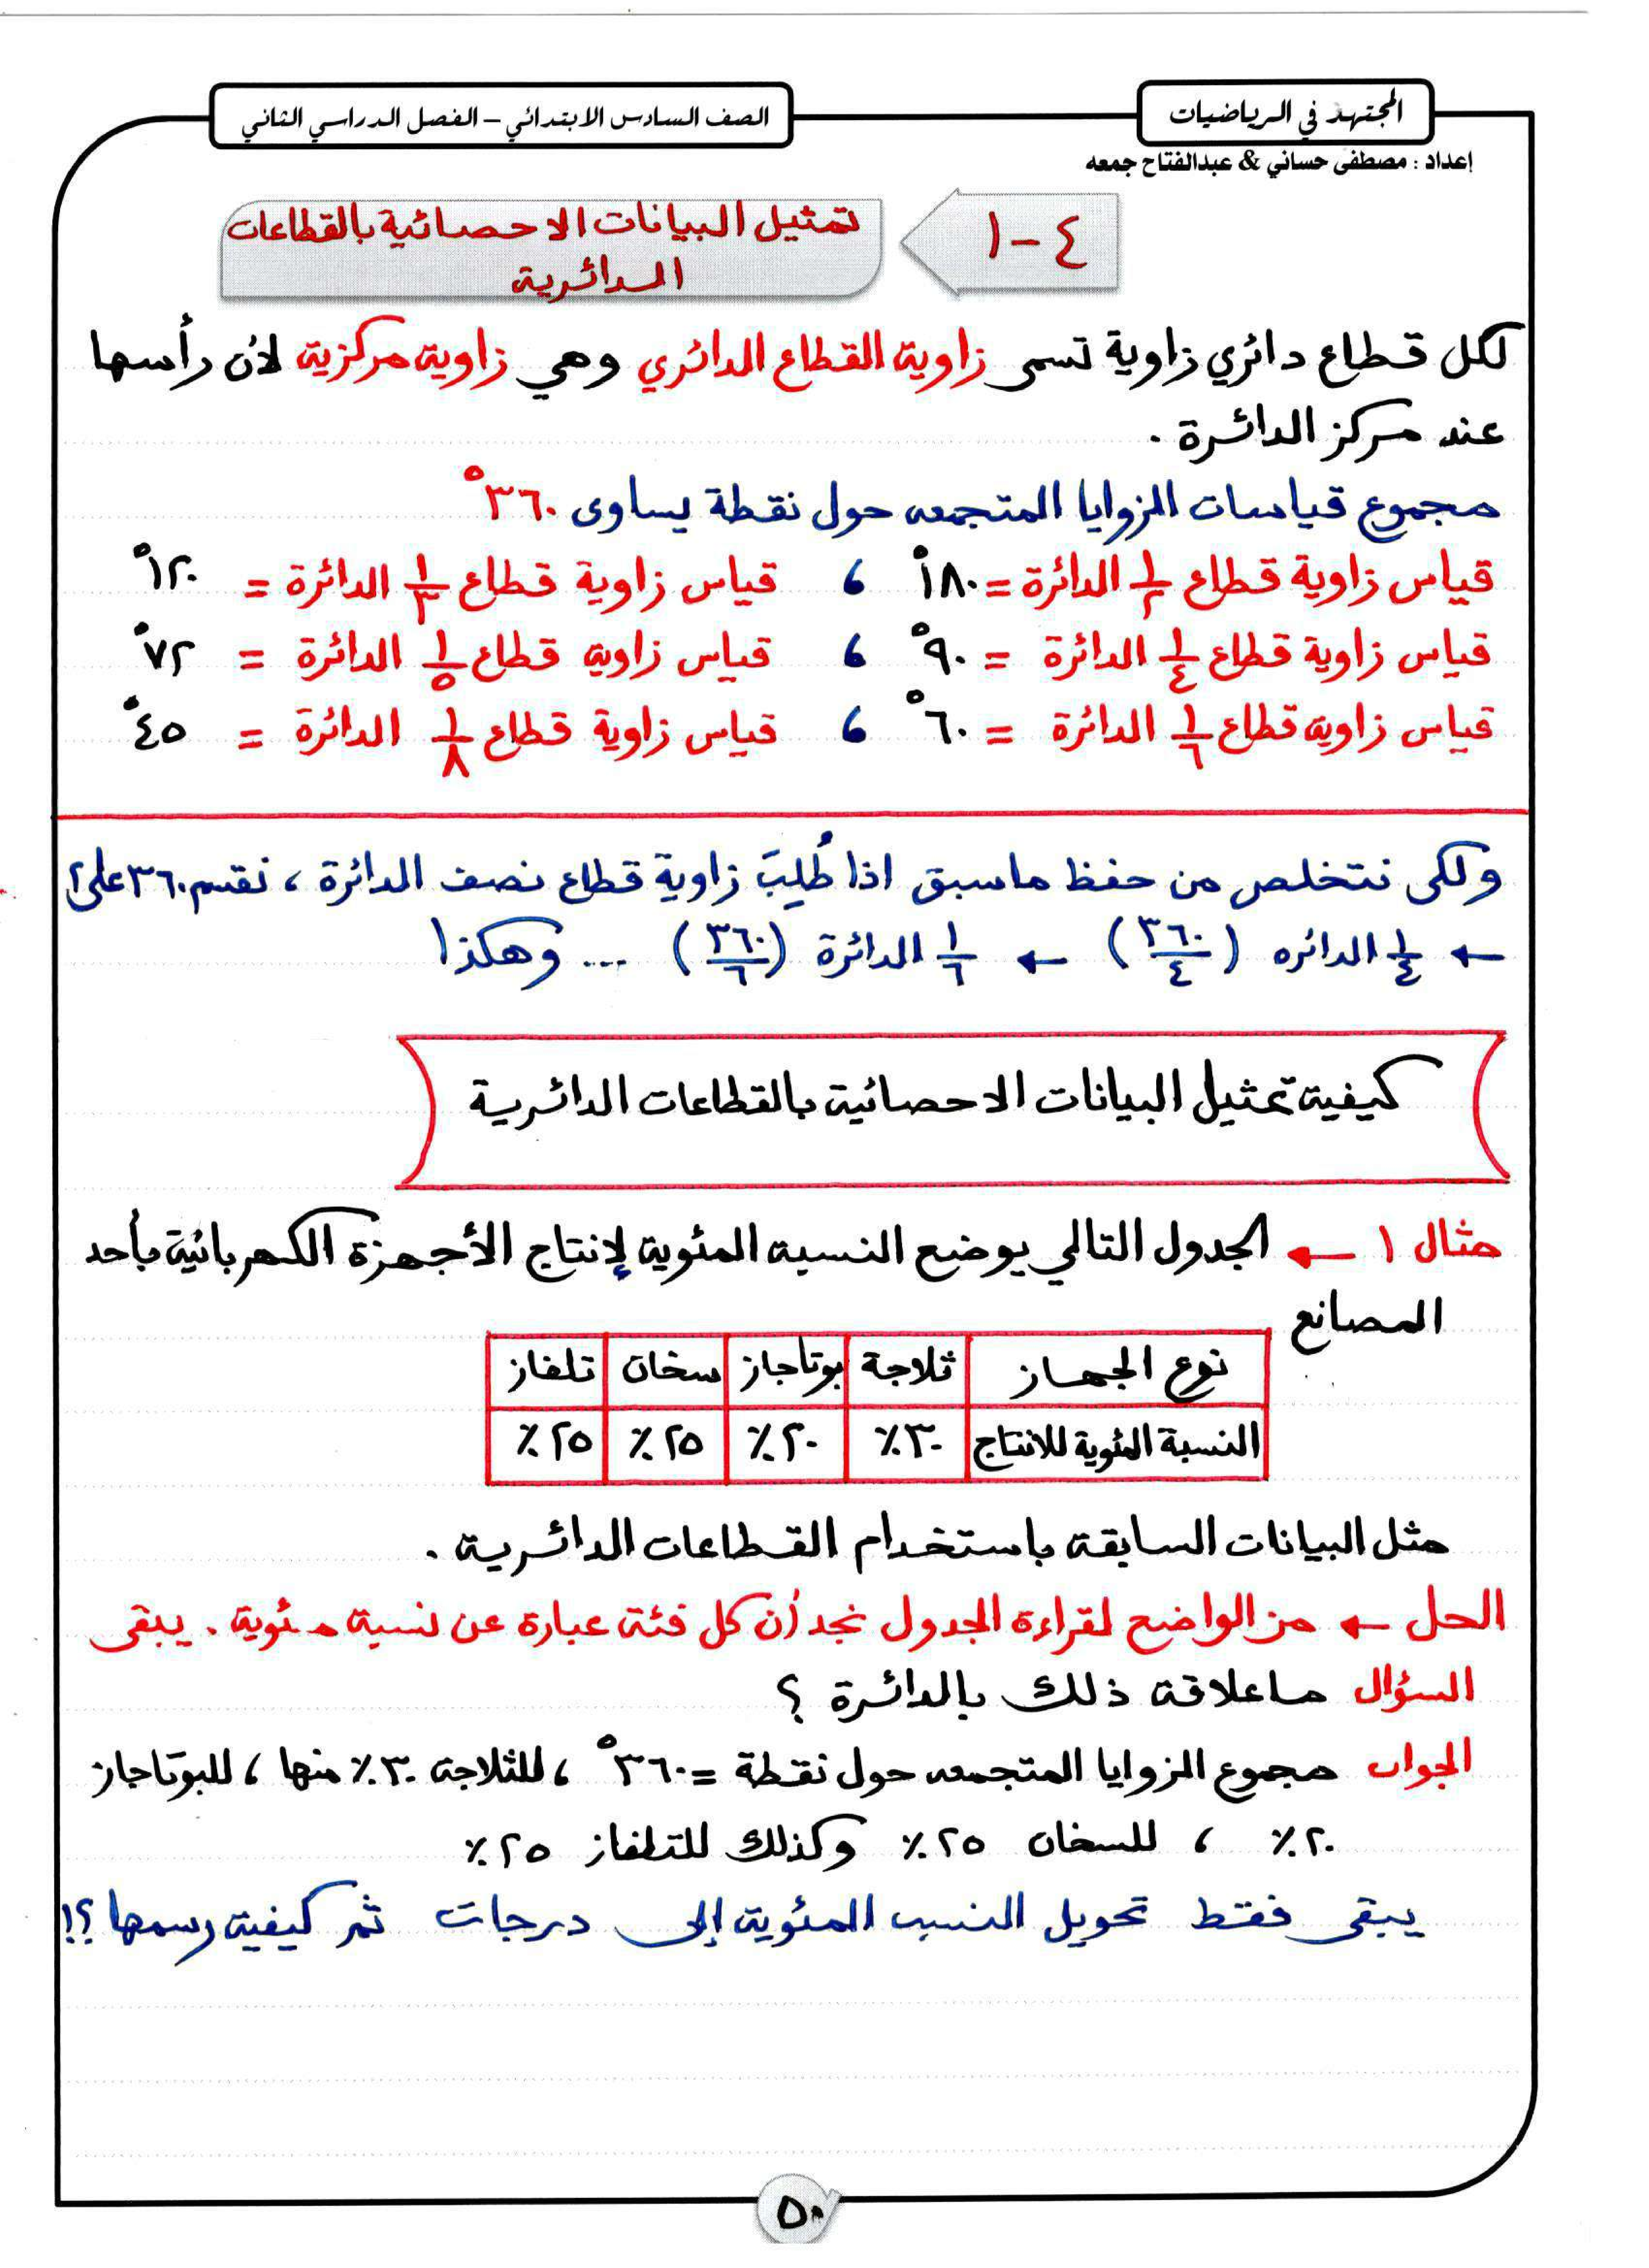 المجتهد في الرياضيات
الصف السادس الابتدائي – الفصل الدراسي الثاني
إعداد : مصطفى حساني & عبدالفتاح جمعه
٤ – ١
تمثيل البيانات الاحصائية بالقطاعات
الدائرية
لكل قطاع دائري زاوية تسمى زاوية القطاع الدائري وهي زاوية مركزية لأن رأسها
عند مركز الدائرة .
مجموع قياسات الزوايا المتجمعه حول نقطة يساوى ٣٦٠°
قياس زاوية قطاع ١/٢ الدائرة = ١٨٠° ، قياس زاوية قطاع ١/٣ الدائرة = ١٢٠°
قياس زاوية قطاع ١/٤ الدائرة = ٩٠° ، قياس زاوية قطاع ١/٥ الدائرة = ٧٢°
قياس زاوية قطاع ١/٦ الدائرة = ٦٠° ، قياس زاوية قطاع ١/٨ الدائرة = ٤٥°
ولكى نتخلص من حفظ ماسبق اذا طُلِبَ زاوية قطاع نصف الدائرة ، نقسم ٣٦٠ على ٢
← ١/٤ الدائره (٣٦٠/٤) ← ١/٦ الدائرة (٣٦٠/٦) ... وهكذا
كيفية تمثيل البيانات الاحصائية بالقطاعات الدائرية
مثال ١ ← الجدول التالي يوضع النسبه المئوية لإنتاج الأجهزة الكهربائية بأحد
المصانع
نوع الجهاز ثلاجة بوتاجاز سخان تلفاز
النسبة المئوية للانتاج ٣٠٪ ٢٠٪ ٢٥٪ ٢٥٪
مثل البيانات السابقة باستخدام القطاعات الدائرية .
الحل ← من الواضح لقراءة الجدول نجد أن كل فئة عبارة عن نسبة مئوية . يبقى
السؤال ماعلاقة ذلك بالدائرة ؟
الجواب مجموع الزوايا المتجمعه حول نقطة = ٣٦٠° ، للثلاجة ٣٠٪ منها ، للبوتاجاز
٢٠٪ ، للسخان ٢٥٪ وكذلك للتلفاز ٢٥٪
يبقى فقط تحويل النسب المئوية إلى درجات ثم كيفية رسمها ؟!
٥٠